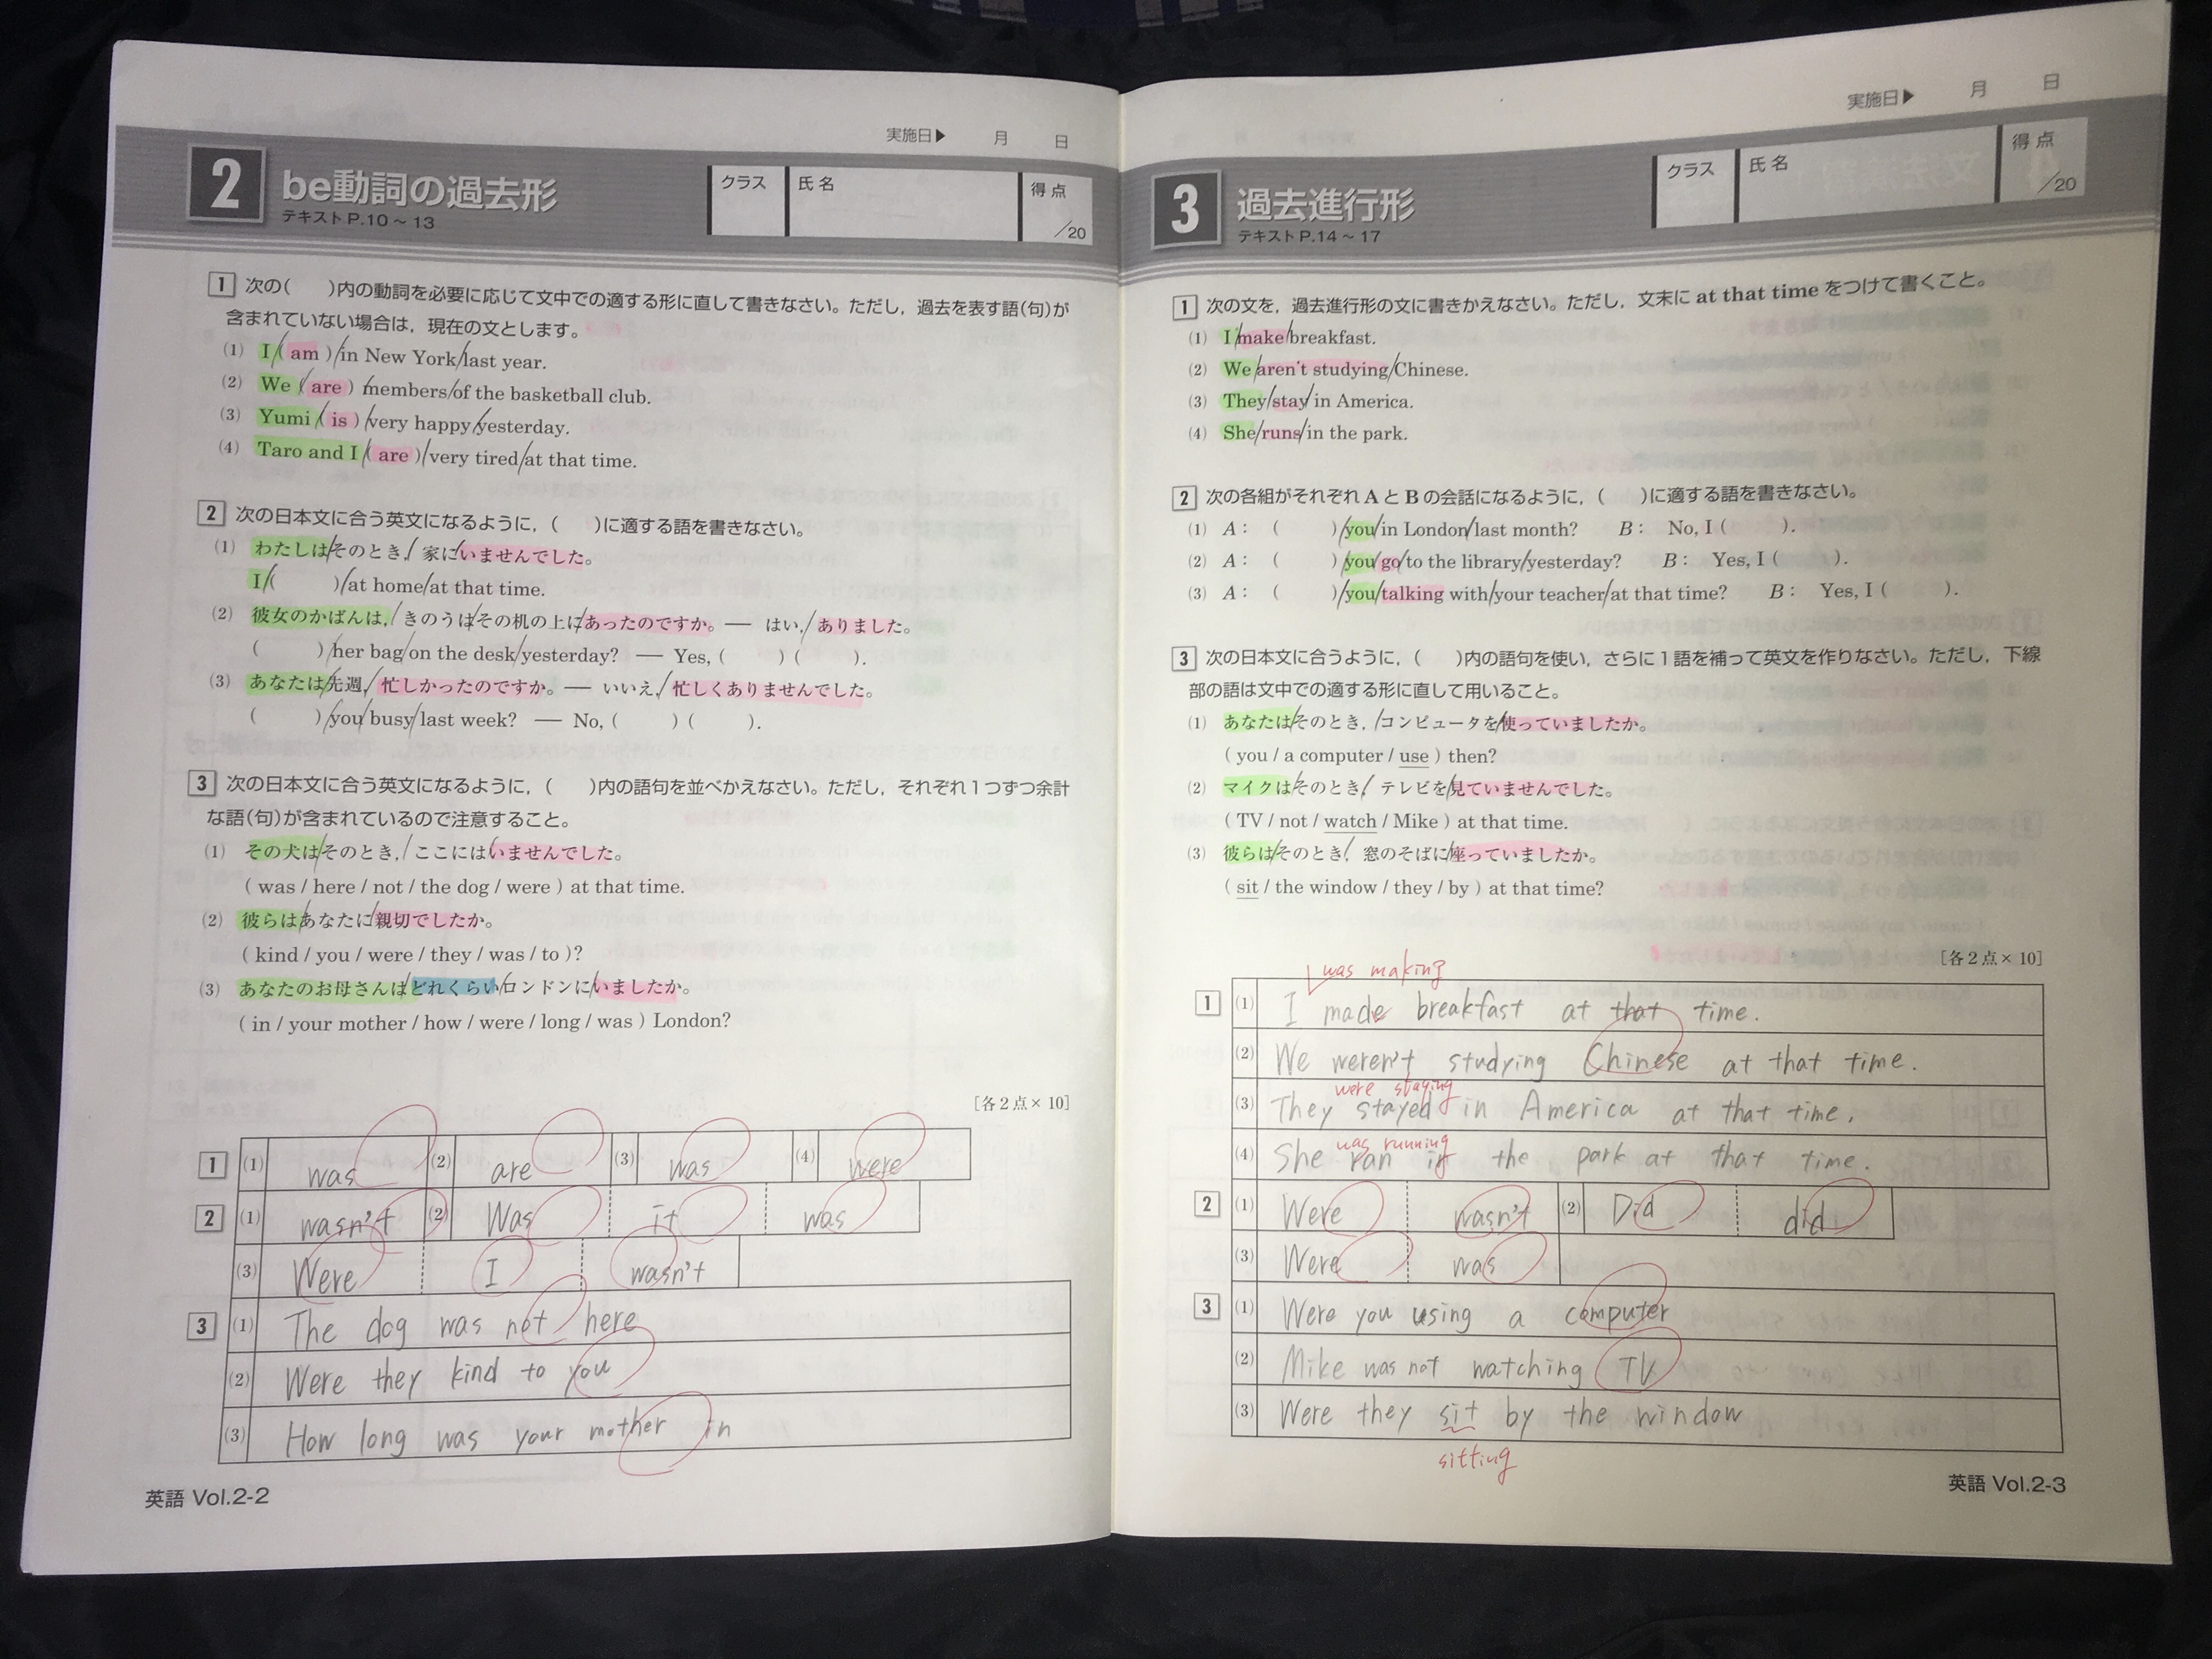 実施日▶ 月 日
2 be動詞の過去形
テキストP.10～13
クラス 氏名 得点
/20
1 次の( )内の動詞を必要に応じて文中での適する形に直して書きなさい。ただし，過去を表す語(句)が
含まれていない場合は，現在の文とします。
(1) I ( am ) in New York last year.
(2) We ( are ) members of the basketball club.
(3) Yumi ( is ) very happy yesterday.
(4) Taro and I ( are ) very tired at that time.
2 次の日本文に合う英文になるように，( )に適する語を書きなさい。
(1) わたしはそのとき，家にいませんでした。
I ( ) at home at that time.
(2) 彼女のかばんは，きのうはその机の上にあったのですか。― はい，ありました。
( ) her bag on the desk yesterday? ― Yes, ( ) ( ).
(3) あなたは先週，忙しかったのですか。― いいえ，忙しくありませんでした。
( ) you busy last week? ― No, ( ) ( ).
3 次の日本文に合う英文になるように，( )内の語句を並べかえなさい。ただし，それぞれ1つずつ余計
な語(句)が含まれているので注意すること。
(1) その犬はそのとき，ここにはいませんでした。
( was / here / not / the dog / were ) at that time.
(2) 彼らはあなたに親切でしたか。
( kind / you / were / they / was / to )?
(3) あなたのお母さんはどれくらいロンドンにいましたか。
( in / your mother / how / were / long / was ) London?
[各2点×10]
1 (1) was (2) are (3) was (4) were
2 (1) wasn't (2) Was it was
(3) Were I wasn't
3 (1) The dog was not here
(2) Were they kind to you
(3) How long was your mother in
英語 Vol.2-2
実施日▶ 月 日
3 過去進行形
テキストP.14～17
クラス 氏名 得点
/20
1 次の文を，過去進行形の文に書きかえなさい。ただし，文末に at that time をつけて書くこと。
(1) I make breakfast.
(2) We aren't studying Chinese.
(3) They stay in America.
(4) She runs in the park.
2 次の各組がそれぞれ A と B の会話になるように，( )に適する語を書きなさい。
(1) A： ( ) you in London last month? B： No, I ( ).
(2) A： ( ) you go to the library yesterday? B： Yes, I ( ).
(3) A： ( ) you talking with your teacher at that time? B： Yes, I ( ).
3 次の日本文に合うように，( )内の語句を使い，さらに1語を補って英文を作りなさい。ただし，下線
部の語は文中での適する形に直して用いること。
(1) あなたはそのとき，コンピュータを使っていましたか。
( you / a computer / use ) then?
(2) マイクはそのとき，テレビを見ていませんでした。
( TV / not / watch / Mike ) at that time.
(3) 彼らはそのとき，窓のそばに座っていましたか。
( sit / the window / they / by ) at that time?
[各2点×10]
was making
1 (1) I made breakfast at that time.
(2) We weren't studying Chinese at that time.
were staying
(3) They stayed in America at that time.
was running
(4) She ran in the park at that time.
2 (1) Were wasn't (2) Did did
(3) Were was
3 (1) Were you using a computer
(2) Mike was not watching TV
(3) Were they sit by the window
sitting
英語 Vol.2-3